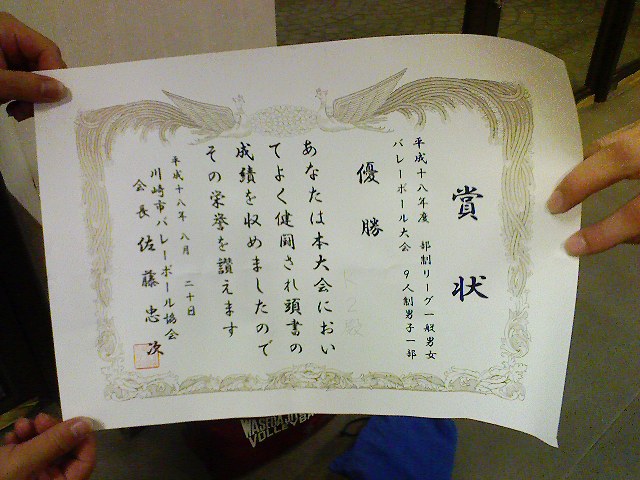 賞状
平成十八年度 部制リーグ一般男女
バレーボール大会 9人制男子一部
優勝
あなたは本大会におい
てよく健闘され頭書の
成績を収めましたので
その栄誉を讃えます
平成十八年 八月 二十日
川崎市バレーボール協会
会長 佐藤忠次
VOLLEYBA